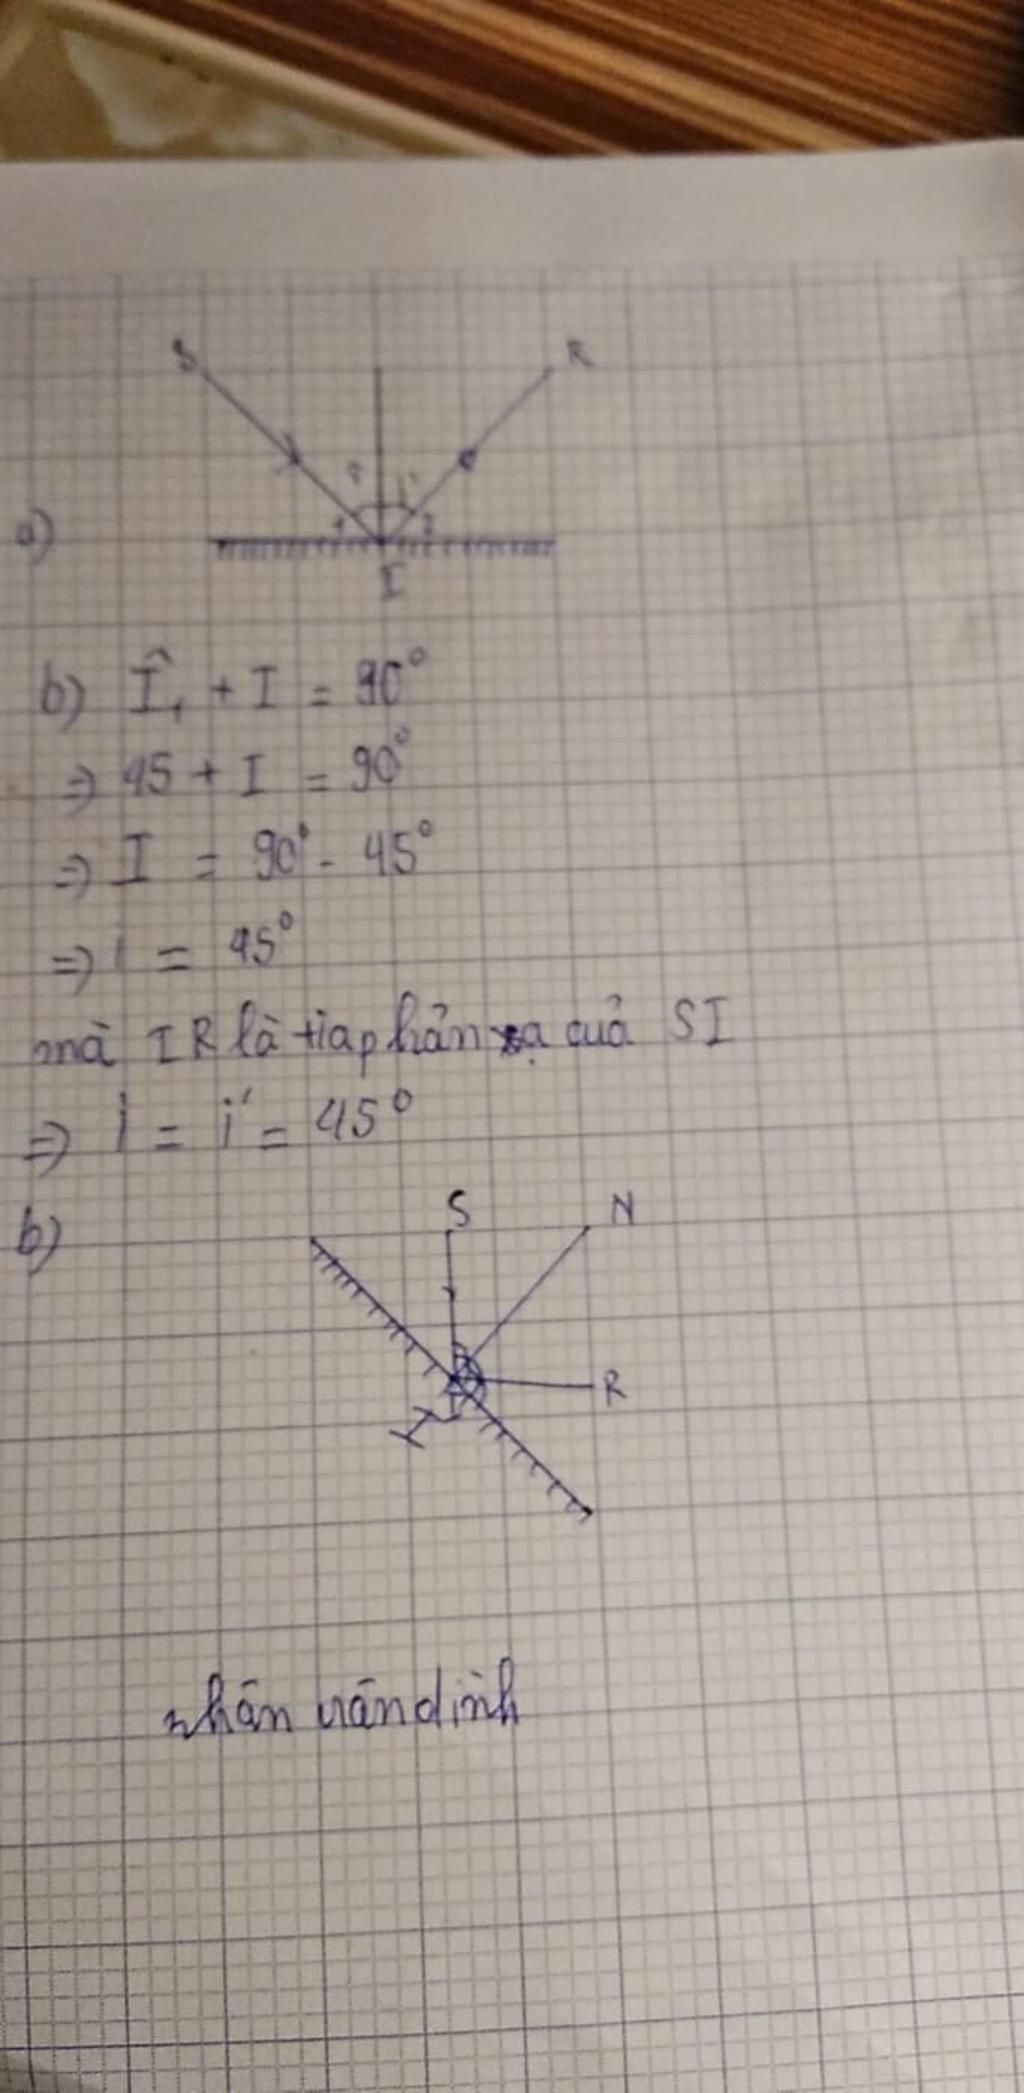 S R
i i'
a) 1 2
I
b) Î₁ + I = 90°
⇒ 45 + I = 90°
⇒ I = 90° - 45°
⇒ i = 45°
mà IR là tia phản xạ cuả SI
⇒ i = i' = 45°
b) S N
R
I
nhân văn dình